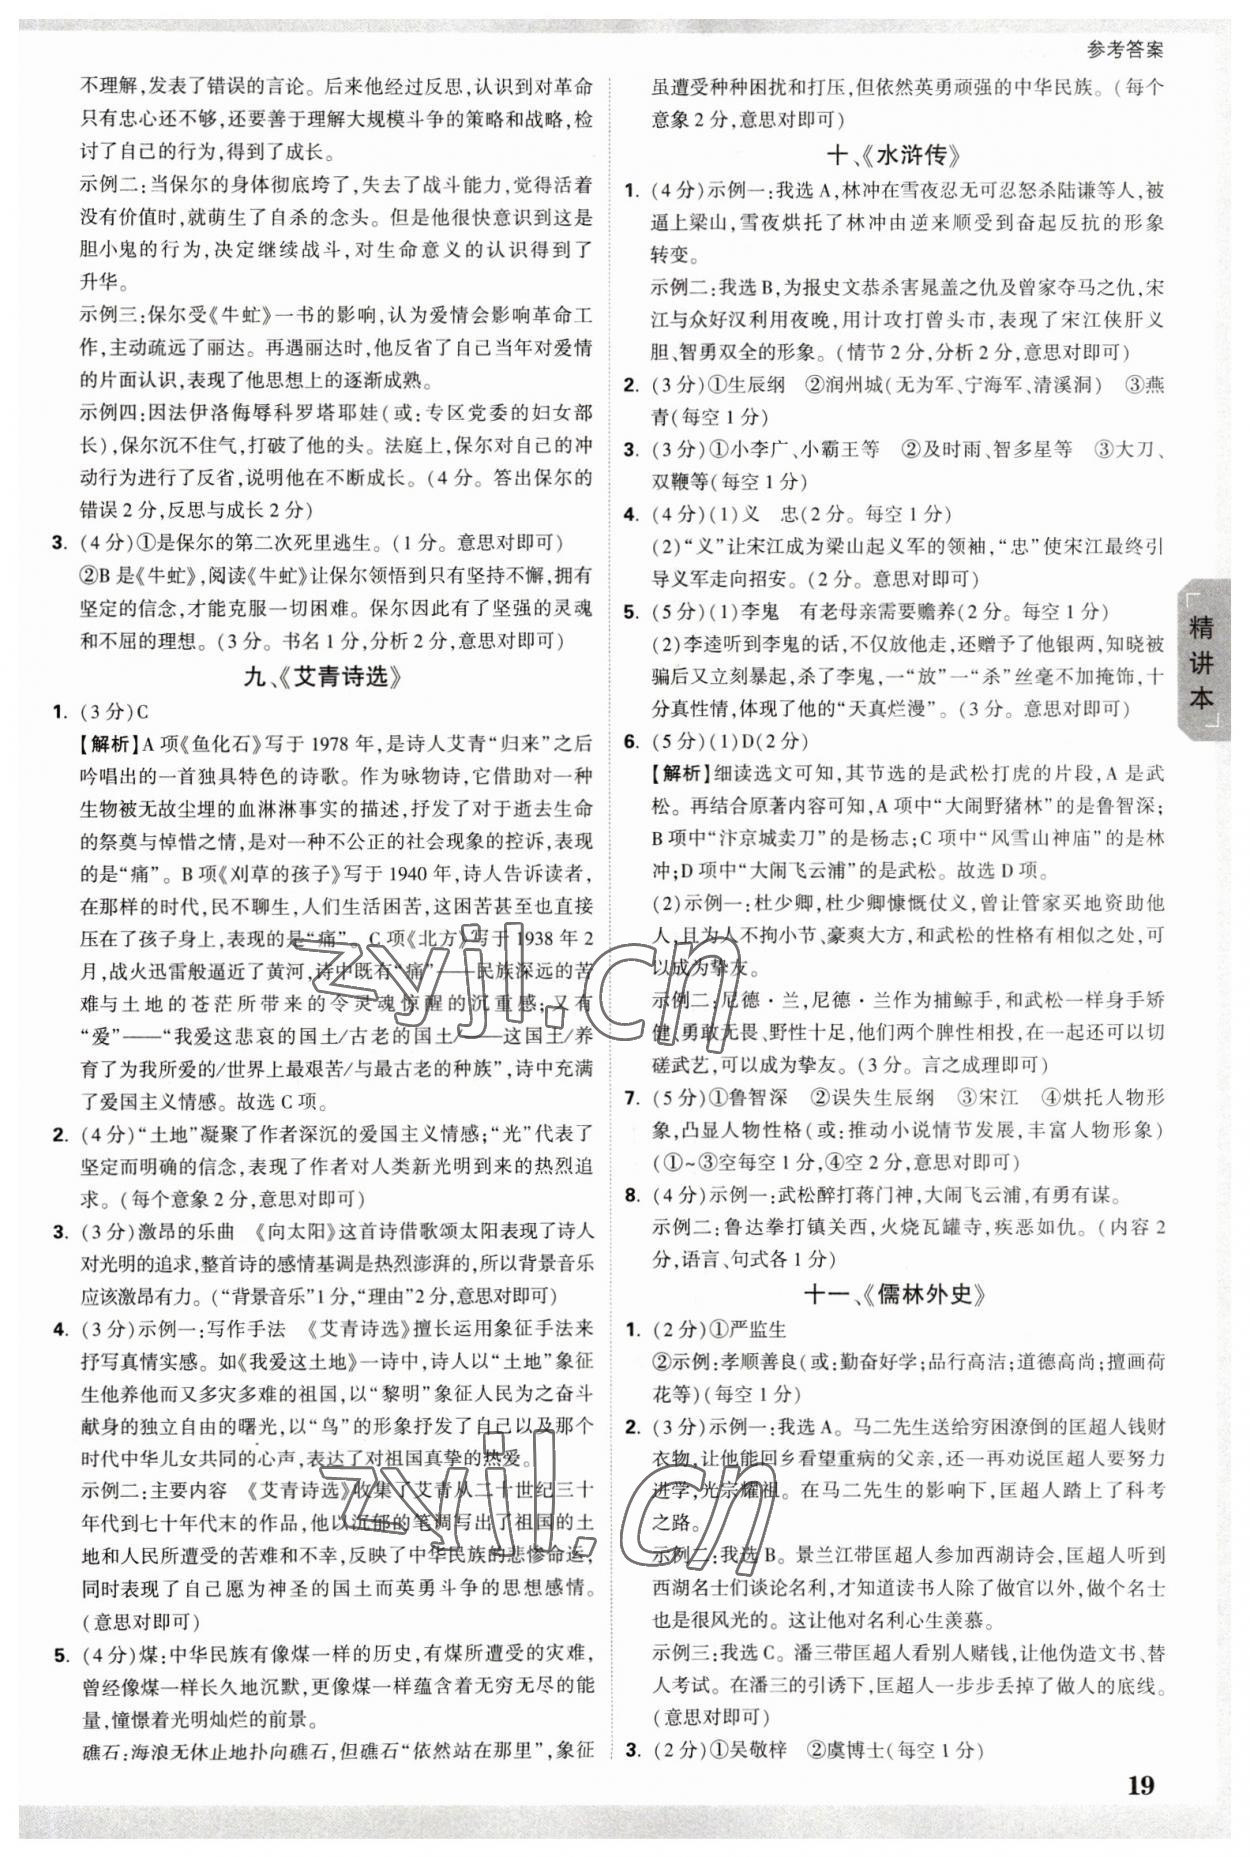 参考答案
不理解,发表了错误的言论。后来他经过反思,认识到对革命
只有忠心还不够,还要善于理解大规模斗争的策略和战略,检
讨了自己的行为,得到了成长。
示例二:当保尔的身体彻底垮了,失去了战斗能力,觉得活着
没有价值时,就萌生了自杀的念头。但是他很快意识到这是
胆小鬼的行为,决定继续战斗,对生命意义的认识得到了
升华。
示例三:保尔受《牛虻》一书的影响,认为爱情会影响革命工
作,主动疏远了丽达。再遇丽达时,他反省了自己当年对爱情
的片面认识,表现了他思想上的逐渐成熟。
示例四:因法伊洛侮辱科罗塔耶娃(或:专区党委的妇女部
长),保尔沉不住气,打破了他的头。法庭上,保尔对自己的冲
动行为进行了反省,说明他在不断成长。(4分。答出保尔的
错误2分,反思与成长2分)
3. (4分)①是保尔的第二次死里逃生。(1分。意思对即可)
②B是《牛虻》,阅读《牛虻》让保尔领悟到只有坚持不懈,拥有
坚定的信念,才能克服一切困难。保尔因此有了坚强的灵魂
和不屈的理想。(3分。书名1分,分析2分,意思对即可)
九、《艾青诗选》
1. (3分)C
【解析】A项《鱼化石》写于1978年,是诗人艾青“归来”之后
吟唱出的一首独具特色的诗歌。作为咏物诗,它借助对一种
生物被无故尘埋的血淋淋事实的描述,抒发了对于逝去生命
的祭奠与悼惜之情,是对一种不公正的社会现象的控诉,表现
的是“痛”。B项《刈草的孩子》写于1940年,诗人告诉读者,
在那样的时代,民不聊生,人们生活困苦,这困苦甚至也直接
压在了孩子身上,表现的是“痛”。C项《北方》写于1938年2
月,战火迅雷般逼近了黄河,诗中既有“痛”——民族深远的苦
难与土地的苍茫所带来的令灵魂惊醒的沉重感;又有
“爱”——“我爱这悲哀的国土/古老的国土/——这国土/养
育了为我所爱的/世界上最艰苦/与最古老的种族”,诗中充满
了爱国主义情感。故选C项。
2. (4分)“土地”凝聚了作者深沉的爱国主义情感;“光”代表了
坚定而明确的信念,表现了作者对人类新光明到来的热烈追
求。(每个意象2分,意思对即可)
3. (3分)激昂的乐曲　《向太阳》这首诗借歌颂太阳表现了诗人
对光明的追求,整首诗的感情基调是热烈澎湃的,所以背景音乐
应该激昂有力。(“背景音乐”1分,“理由”2分,意思对即可)
4. (3分)示例一:写作手法　《艾青诗选》擅长运用象征手法来
抒写真情实感。如《我爱这土地》一诗中,诗人以“土地”象征
生他养他而又多灾多难的祖国,以“黎明”象征人民为之奋斗
献身的独立自由的曙光,以“鸟”的形象抒发了诗人和那个
时代中华儿女共同的心声,表达了对祖国真挚的热爱。
示例二:主要内容　《艾青诗选》收集了艾青从二十世纪三十
年代到七十年代末的作品,他以沉郁的笔调写出了祖国的土
地和人民所遭受的苦难和不幸,反映了中华民族的悲惨命运,
同时表现了自己愿为神圣的国土而英勇斗争的思想感情。
(意思对即可)
5. (4分)煤:中华民族有像煤一样的历史,有煤所遭受的灾难,
曾经像煤一样长久地沉默,更像煤一样蕴含着无穷无尽的能
量,憧憬着光明灿烂的前景。
礁石:海浪无休止地扑向礁石,但礁石“依然站在那里”,象征
虽遭受种种困扰和打压,但依然英勇顽强的中华民族。(每个
意象2分,意思对即可)
十、《水浒传》
1. (4分)示例一:我选A,林冲在雪夜忍无可忍怒杀陆谦等人,被
逼上梁山,雪夜烘托了林冲由逆来顺受到奋起反抗的形象
转变。
示例二:我选B,为报史文恭杀害晁盖之仇及曾家夺马之仇,宋
江与众好汉利用夜晚,用计攻打曾头市,表现了宋江侠肝义
胆、智勇双全的形象。(情节2分,分析2分,意思对即可)
2. (3分)①生辰纲　②润州城(无为军、宁海军、清溪洞)　③燕
青(每空1分)
3. (3分)①小李广、小霸王等　②及时雨、智多星等　③大刀、
双鞭等(每空1分)
4. (4分)(1)义　忠(2分。每空1分)
(2)“义”让宋江成为梁山起义军的领袖,“忠”使宋江最终引
导义军走向招安。(2分。意思对即可)
5. (5分)(1)李鬼　有老母亲需要赡养(2分。每空1分)
(2)李逵听到李鬼的话,不仅放他走,还赠予了他银两,知晓被
骗后又立刻暴起,杀了李鬼,一“放”一“杀”丝毫不加掩饰,十
分真性情,体现了他的“天真烂漫”。(3分。意思对即可)
6. (5分)(1)D(2分)
【解析】细读选文可知,其节选的是武松打虎的片段,A是武
松。再结合原著内容可知,A项中“大闹野猪林”的是鲁智深;
B项中“汴京城卖刀”的是杨志;C项中“风雪山神庙”的是林
冲;D项中“大闹飞云浦”的是武松。故选D项。
(2)示例一:杜少卿,杜少卿慷慨仗义,曾让管家买地资助他
人,且为人不拘小节、豪爽大方,和武松的性格有相似之处,可
以成为挚友。
示例二:尼德·兰,尼德·兰作为捕鲸手,和武松一样身手矫
健、勇敢无畏、野性十足,他们两个脾性相投,在一起还可以切
磋武艺,可以成为挚友。(3分。言之成理即可)
7. (5分)①鲁智深　②误失生辰纲　③宋江　④烘托人物形
象,凸显人物性格(或:推动小说情节发展,丰富人物形象)
(①~③空每空1分,④空2分,意思对即可)
8. (4分)示例一:武松醉打蒋门神,大闹飞云浦,有勇有谋。
示例二:鲁达拳打镇关西,火烧瓦罐寺,疾恶如仇。(内容2
分,语言、句式各1分)
十一、《儒林外史》
1. (2分)①严监生
②示例:孝顺善良(或:勤奋好学;品行高洁;道德高尚;擅画荷
花等)(每空1分)
2. (3分)示例一:我选A。马二先生送给穷困潦倒的匡超人钱财
衣物,让他能回乡看望重病的父亲,还一再劝说匡超人要努力
进学,光宗耀祖。在马二先生的影响下,匡超人踏上了科考
之路。
示例二:我选B。景兰江带匡超人参加西湖诗会,匡超人听到
西湖名士们谈论名利,才知道读书人除了做官以外,做个名士
也是很风光的。这让他对名利心生羡慕。
示例三:我选C。潘三带匡超人看别人赌钱,让他伪造文书、替
人考试。在潘三的引诱下,匡超人一步步丢掉了做人的底线。
(意思对即可)
3. (2分)①吴敬梓　②虞博士(每空1分)
精讲本
19
zyjl.cn
zyjl.cn